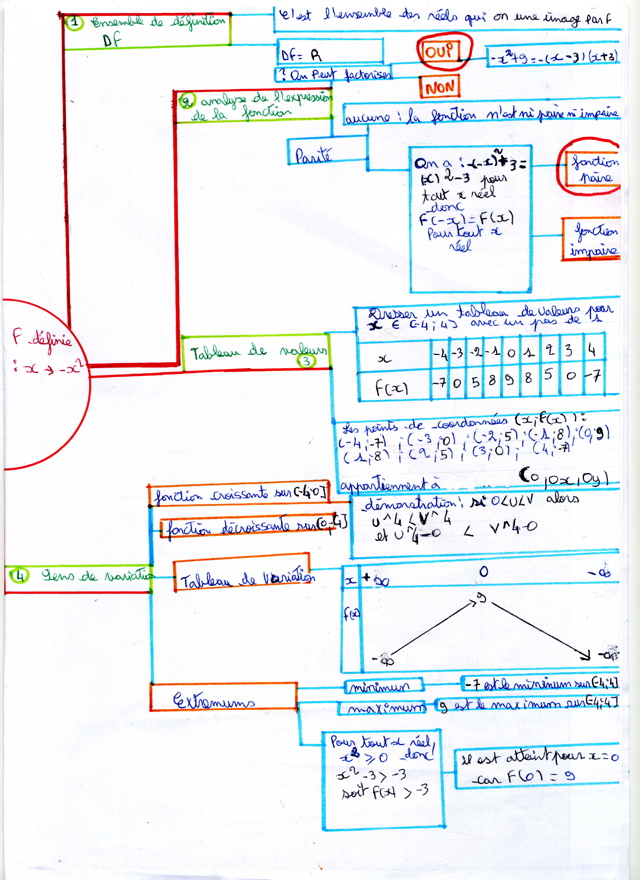 ① Ensemble de définition
DF
C'est l'ensemble des réels qui on une image par F
DF = R
OUI
-x²+9 = -(x-3)(x+3)
? On peut factoriser
NON
② analyse de l'expression
de la fonction
aucune : la fonction n'est ni paire ni impaire
Parité
On a : -(-x)^2+3 =
(x)^2-3 pour
tout x réel
donc
F(-x) = F(x)
Pour tout x
réel
fonction
paire
fonction
impaire
F définie
: x → -x²
Tableau de valeurs
③
Dresser un tableau de valeurs pour
x ∈ [-4; 4] avec un pas de 1
x -4 -3 -2 -1 0 1 2 3 4
F(x) -7 0 5 8 9 8 5 0 -7
Les points de coordonnées (x; F(x)) :
(-4;-7) ; (-3;0) ; (-2;5) ; (-1;8) ; (0,9)
(1;8) ; (2;5) ; (3;0) ; (4;-7)
appartiennent à (O,Ox,Oy)
④ Sens de variation
fonction croissante sur [-4;0]
fonction décroissante sur [0,4]
démonstration : si 0<U<V alors
U^4 < V^4
et U^4-0 < V^4-0
Tableau de variation
x +∞ 0 -∞
F(x)
9
-∞ -∞
Extremums
minimum
-7 est le minimum sur [-4;4]
maximum
9 est le maximum sur [-4;4]
Pour tout x réel,
x² ⩾ 0 donc
x²-3 > -3
soit F(x) > -3
il est atteint pour x=0
car F(0) = 9